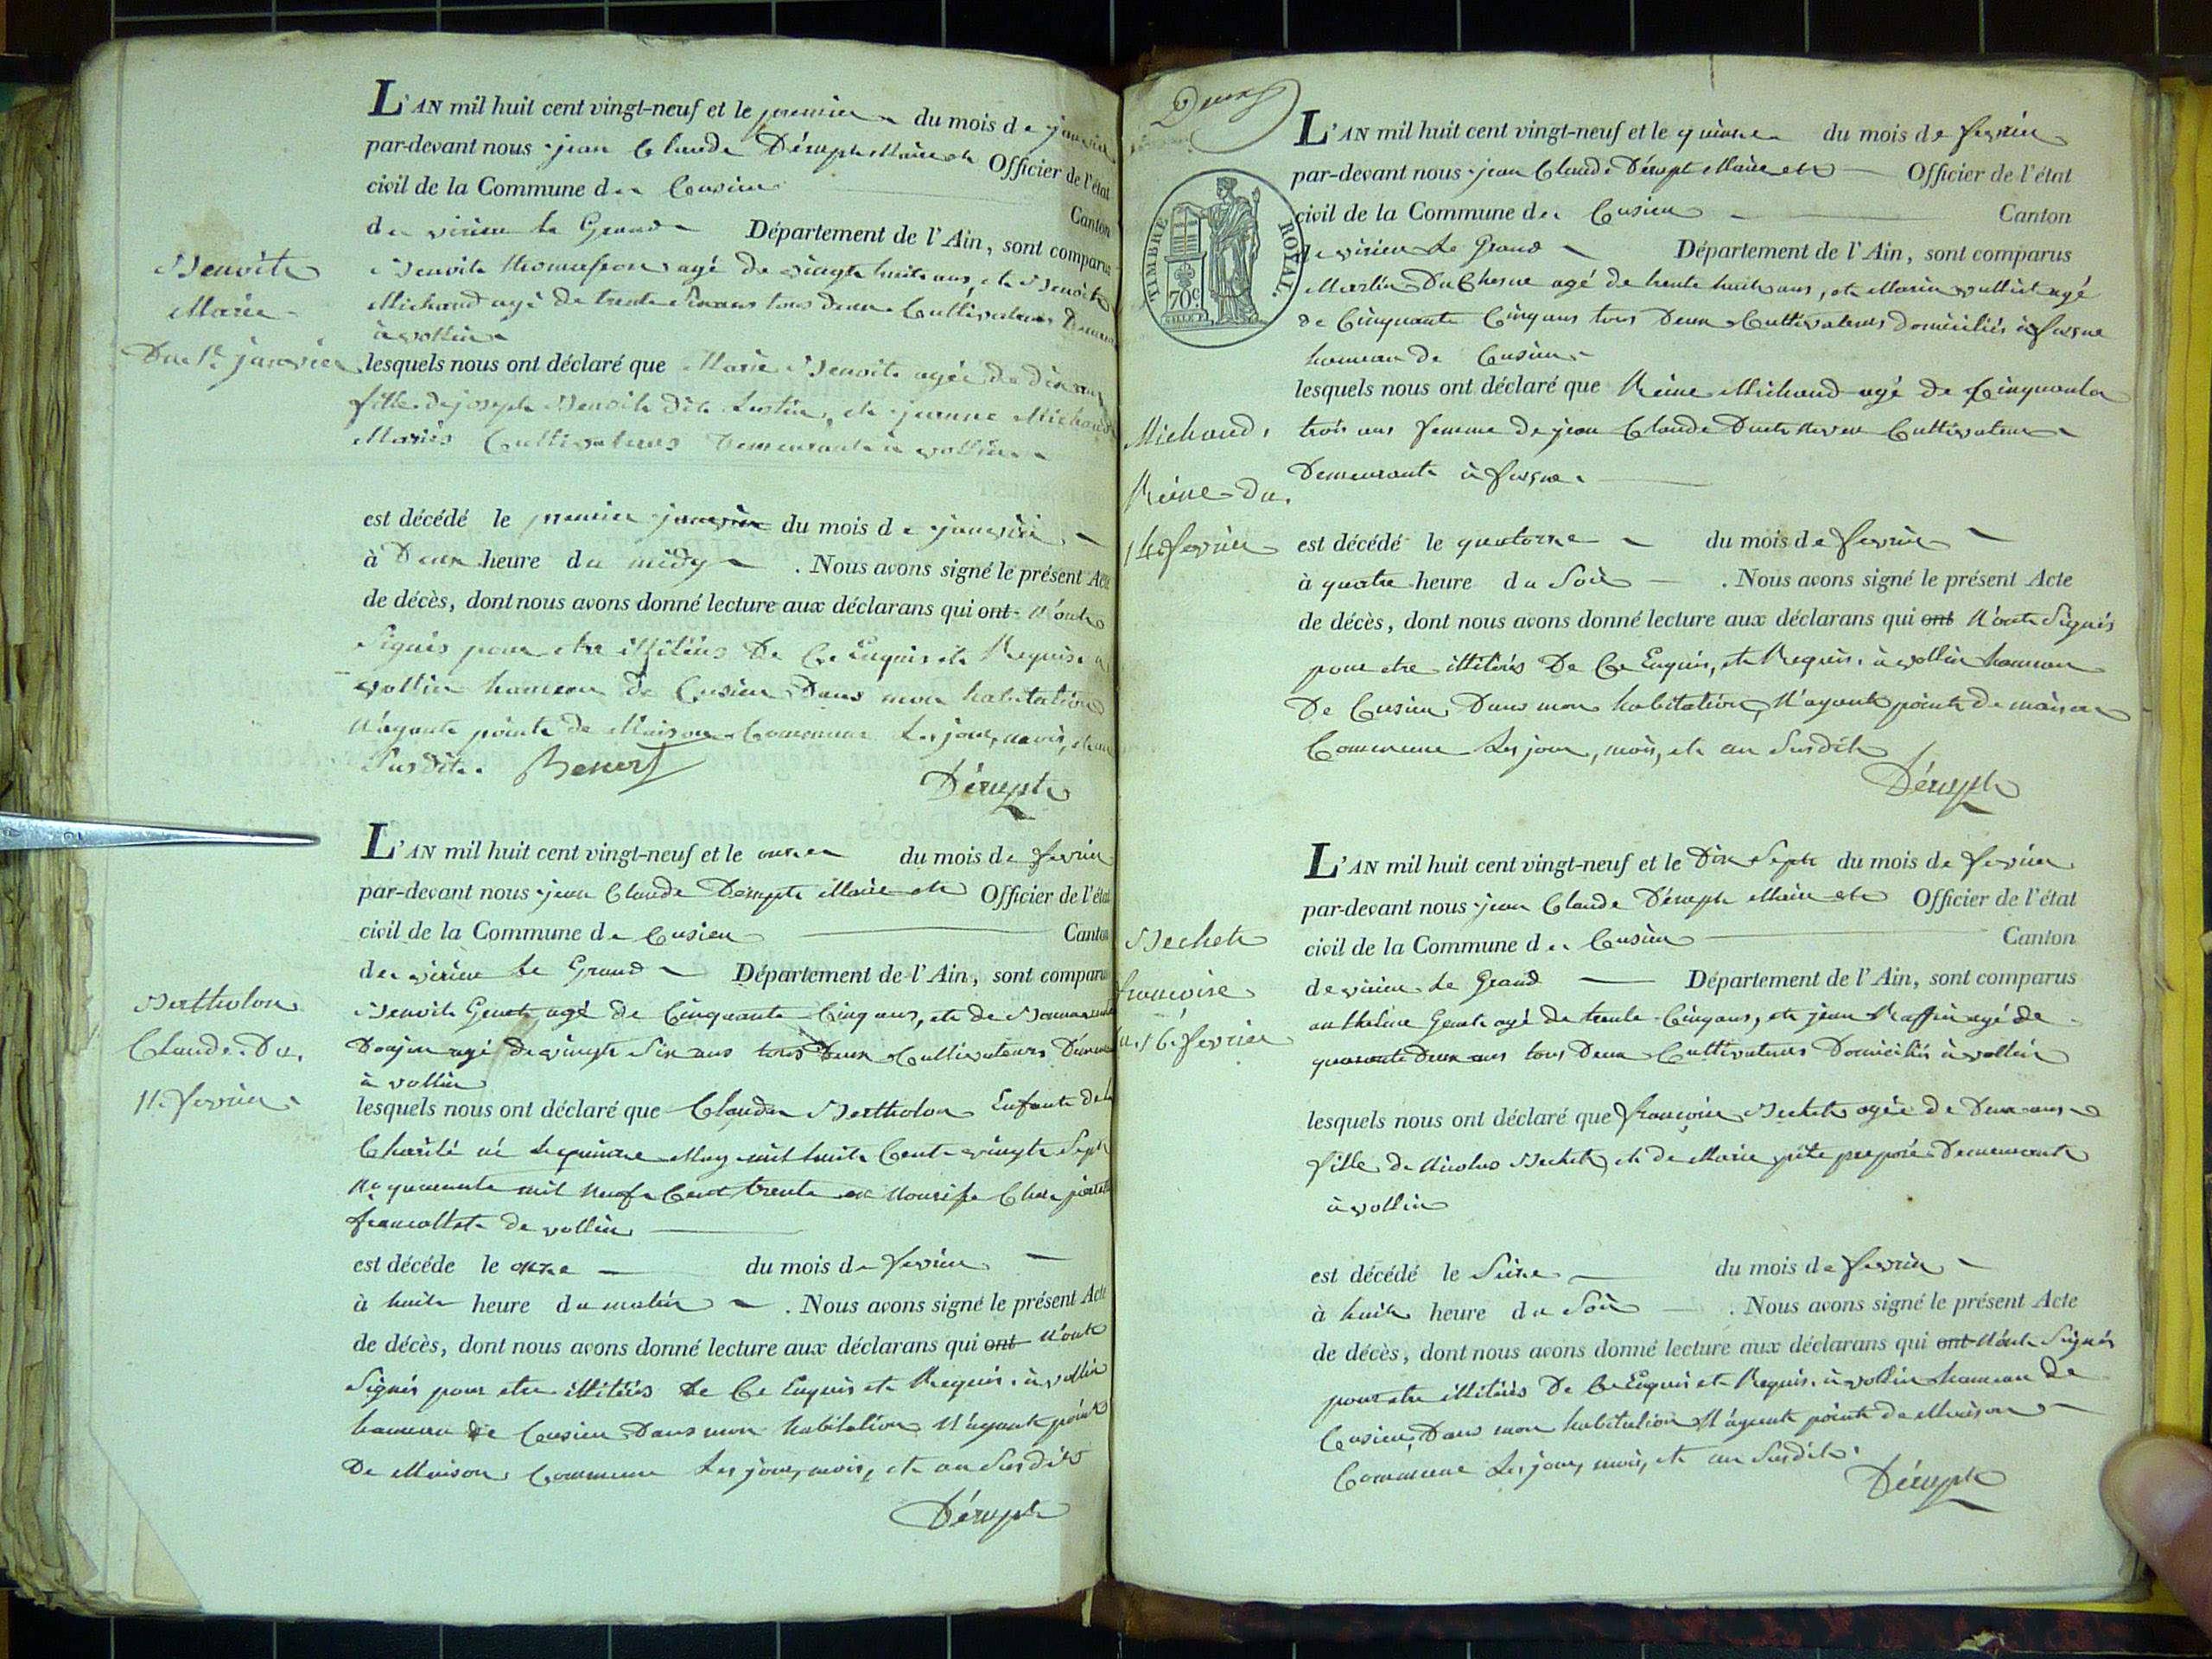 L'AN mil huit cent vingt-neuf et le premier du mois de janvier
par-devant nous jean Claude Dérupt Maire et Officier de l'état
civil de la Commune de Cusieu
Canton
de virieu le Grand Département de l'Ain, sont comparus
Benoit agé de vingt huit ans, et Benoit
Michaud agé de trente six ans tous deux Cultivateurs
à vollin
lesquels nous ont déclaré que Marie Benoit agée de dix ans
fille de joseph Benoit dit et jeanne Michaud
Mariés Cultivateurs Demeurant à vollin
est décédé le premier janvier du mois de janvier
à Deux heure du midy . Nous avons signé le présent Acte
de décès, dont nous avons donné lecture aux déclarans qui ont N'ont
Signés pour etre illitérés De Ce Enquis et Requis à
vollin hameau de Cusieu Dans mon habitation
N'ayant point de Maison Commune Les jour, mois, et an
Susdit.
Dérupt
Benoit
Marie
Du 1er janvier
L'AN mil huit cent vingt-neuf et le onze du mois de fevrier
par-devant nous jean Claude Dérupt Maire et Officier de l'état
civil de la Commune de Cusieu Canton
de virieu le Grand Département de l'Ain, sont comparus
Benoit agé de Cinquante Cinq ans, et de
agé de vingt Six ans tous Deux Cultivateurs
à vollin
lesquels nous ont déclaré que Claude Bertholon Enfant de la
Charité né le quinze May mil huit Cent vingt Sept
No quarante mil Neuf Cent trente
de vollin
est décéde le onze du mois de fevrier
à huit heure du matin . Nous avons signé le présent Acte
de décès, dont nous avons donné lecture aux déclarans qui ont N'ont
Signés pour etre illitérés De Ce Enquis et Requis à vollin
hameau de Cusieu Dans mon habitation N'ayant point
De Maison Commune Les jour, mois, et an Susdit
Dérupt
Bertholon
Claude Du
11 fevrier
Deux
TIMBRE ROYAL.
70c.
L'AN mil huit cent vingt-neuf et le quinze du mois de fevrier
par-devant nous jean Claude Dérupt Maire et Officier de l'état
civil de la Commune de Cusieu Canton
de virieu Le Grand Département de l'Ain, sont comparus
Martin DuChesne agé de trente huit ans, et Marin vulliet agé
de Cinquante Cinq ans tous Deux Cultivateurs domiciliés à
hameau de Cusieu
lesquels nous ont déclaré que Reine Michaud agé de Cinquante
trois ans femme de jean Claude Cultivateur
Demeurant à
est décédé le quatorze du mois de fevrier
à quatre heure du Soir . Nous avons signé le présent Acte
de décès, dont nous avons donné lecture aux déclarans qui ont N'ont Signés
pour etre illitérés De Ce Enquis, et Requis à vollin hameau
De Cusieu Dans mon habitation, N'ayant point de maison
Commune Les jour, mois, et an Susdit
Dérupt
Michaud
Reine Du
14 fevrier
L'AN mil huit cent vingt-neuf et le Dix Sept du mois de fevrier
par-devant nous jean Claude Dérupt Maire et Officier de l'état
civil de la Commune de Cusieu Canton
de virieu Le Grand Département de l'Ain, sont comparus
anthelme agé de trente Cinq ans, et jean Raffin agé de
quarante Deux ans tous Deux Cultivateurs Domiciliés à vollin
lesquels nous ont déclaré que francoise Bechet agée de Deux ans
fille de Nicolas Bechet, et de Marie preposé Demeurant
à vollin
est décédé le Seize du mois de fevrier
à huit heure du Soir . Nous avons signé le présent Acte
de décès, dont nous avons donné lecture aux déclarans qui ont N'ont Signés
pour etre illitérés De Ce Enquis et Requis à vollin hameau de
Cusieu, Dans mon habitation N'ayant point de Maison
Commune Les jour, mois, et an Susdit.
Dérupt
Bechet
francoise
16 fevrier